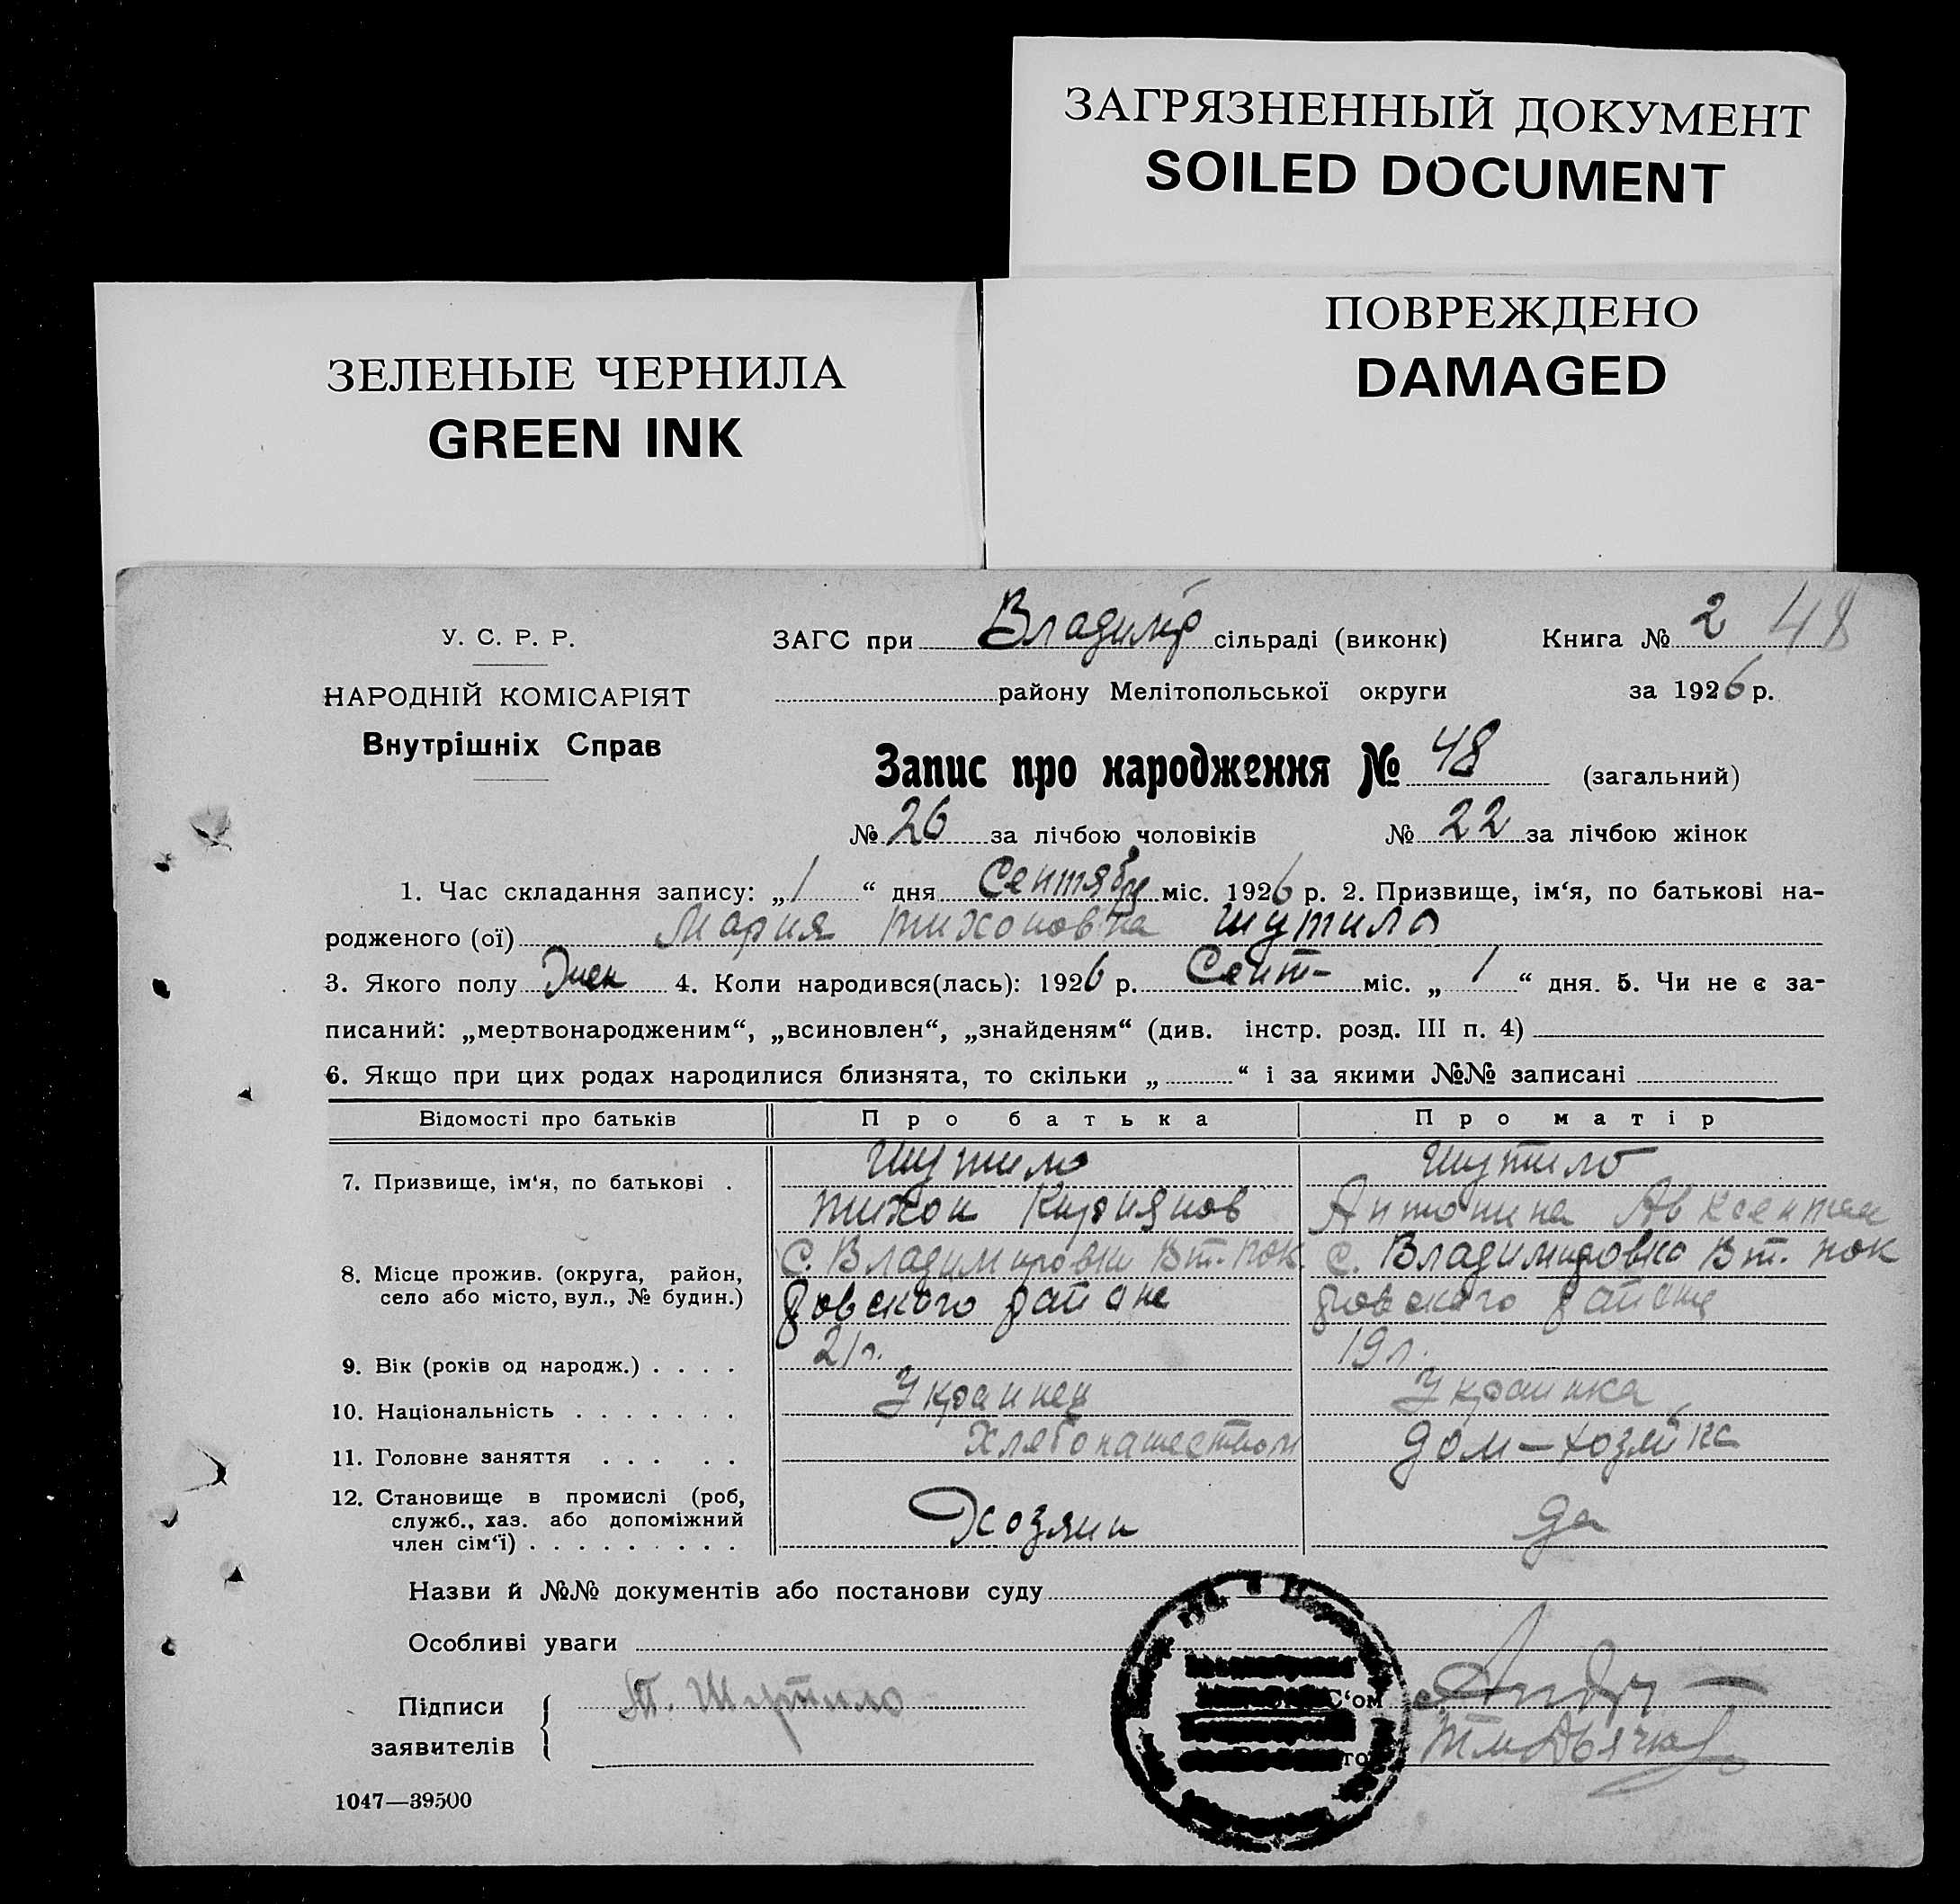 ЗАГРЯЗНЕННЫЙ ДОКУМЕНТ
SOILED DOCUMENT
ПОВРЕЖДЕНО
DAMAGED
ЗЕЛЕНЫЕ ЧЕРНИЛА
GREEN INK
У. С. Р. Р.
НАРОДНІЙ КОМІСАРІЯТ
Внутрішніх Справ
ЗАГС при Владимір сільраді (виконк) Книга № 2 48
району Мелітопольської округи за 1926 р.
Запис про народження № 48 (загальний)
№ 26 за лічбою чоловіків № 22 за лічбою жінок
1. Час складання запису: „1“ дня Сентября міс. 1926 р. 2. Призвище, ім‘я, по батькові на-
родженого (ої) Мария Тихоновна Шутило
3. Якого полу Жен 4. Коли народився(лась): 1926 р. Сент- міс. „1“ дня. 5. Чи не є за-
писаний: „мертвонародженим“, „всиновлен“, „знайденям“ (див. інстр. розд. III п. 4)
6. Якщо при цих родах народилися близнята, то скільки „ “ і за якими №№ записані
Відомості про батьків Про батька Про матір
7. Призвище, ім‘я, по батькові . Шутило Шутило
Тихон Кириянов Антонина Авксентие
8. Місце прожив. (округа, район, село або місто, вул., № будин.) С. Владимировки Вт. Пок. С. Владимировка Вт. Пок
ровского района ровского района
9. Вік (років од народж.) . . . . 21 л. 19 л.
10. Національність . . . . . . . Украинец Украинка
11. Головне заняття . . . . . Хлебопашеством дом-хозяйка
12. Становище в промислі (роб,
служб., хаз. або допоміжний
член сім‘ї) . . . . . . . . . Хозяин да
Назви й №№ документів або постанови суду
Особливі уваги
Підписи
заявителів
Т. Шутило
С‘ом
1047—39500